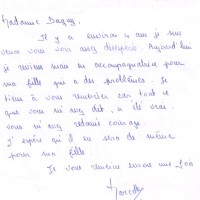 Madame Dagus,
Il y a environ 4 ans je suis
venue vous voir avez désespérée. Aujourd'hui
je reviens mais en accompagnatrice pour
ma fille qui a des problèmes. Je
tiens à vous remercier car tout ce
que vous m'avez dit, a été vrai.
vous m'avez redonné courage.
J'espère qu'il en sera de même
pour ma fille.
Je vous remercie encore une fois